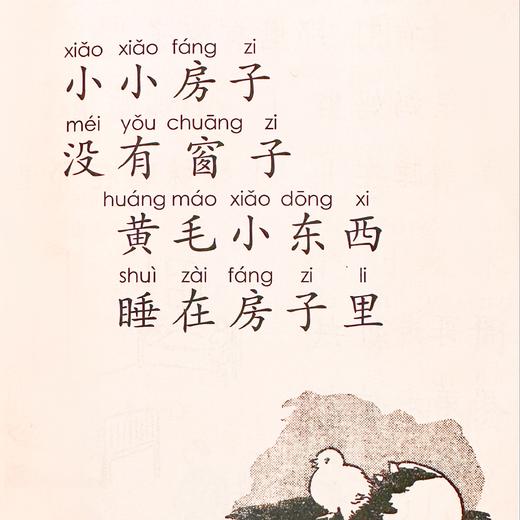 xiǎo xiǎo fáng zi
小小房子
méi yǒu chuāng zi
没有窗子
huáng máo xiǎo dōng xi
黄毛小东西
shuì zài fáng zi li
睡在房子里